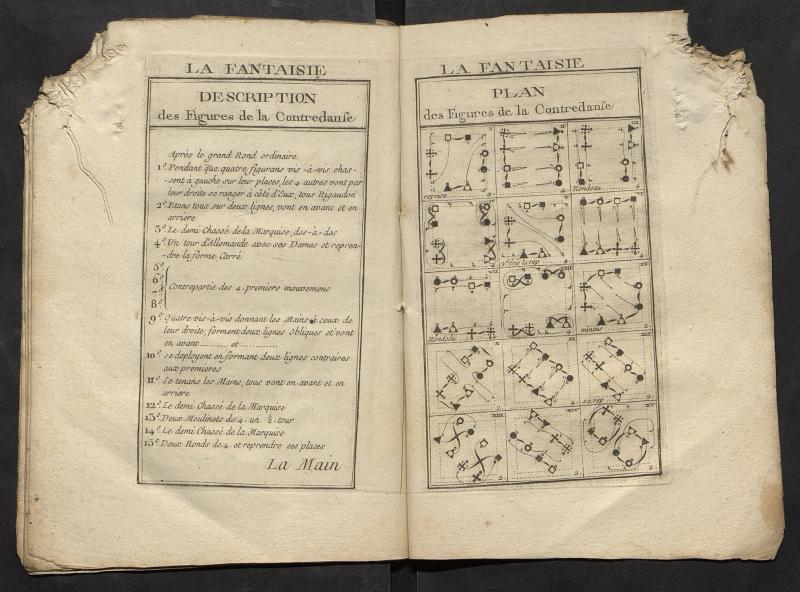 LA FANTAISIE
DESCRIPTION
des Figures de la Contredanse
Après le grand Rond ordinaire
1.º Pendant que quatre figurans vis-à-vis chas-
-sent à gauche sur leur places, les 4 autres vont par
leur droite se ranger à côté d'Eux, tous Rigaudon
2.º Etans tous sur deux lignes, vont en avant et en
arriere
3.º Le demi Chassé de la Marquise, dos-à-dos
4.º Un tour d'Allemande avec ses Dames et repren-
-dre la forme Carré
5.º
6.º
7.º Contrepartie des 4 premiers mouvemens
8.º
9.º Quatre vis-à-vis donnant les Mains à ceux de
leur droite, forment deux lignes Obliques et vont
en avant ............ et ............
10.º se deployent en formant deux lignes contraires
aux premieres
11.º Se tenans les Mains, tous vont en avant et en
arriere
12.º Le demi Chassé de la Marquise
13.º Deux Moulinets de 4. un ½ tour
14.º Le demi Chassé de la Marquise
15.º Deux Ronds de 4. et reprendre ses places
La Main
LA FANTAISIE
PLAN
des Figures de la Contredanse
I II III
reprise 4 4 Rondeau 4
2.e fois la rep
Rondeau mineur 2
X XI XII
2 2 sa rep 2
XIII XIV XV
2 2 2